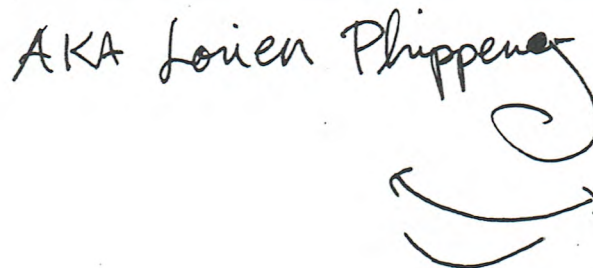 AKA Lorien Phippeny